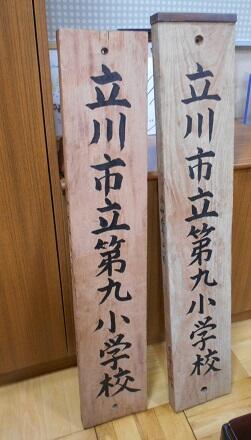 立川市立第九小学校
立川市立第九小学校